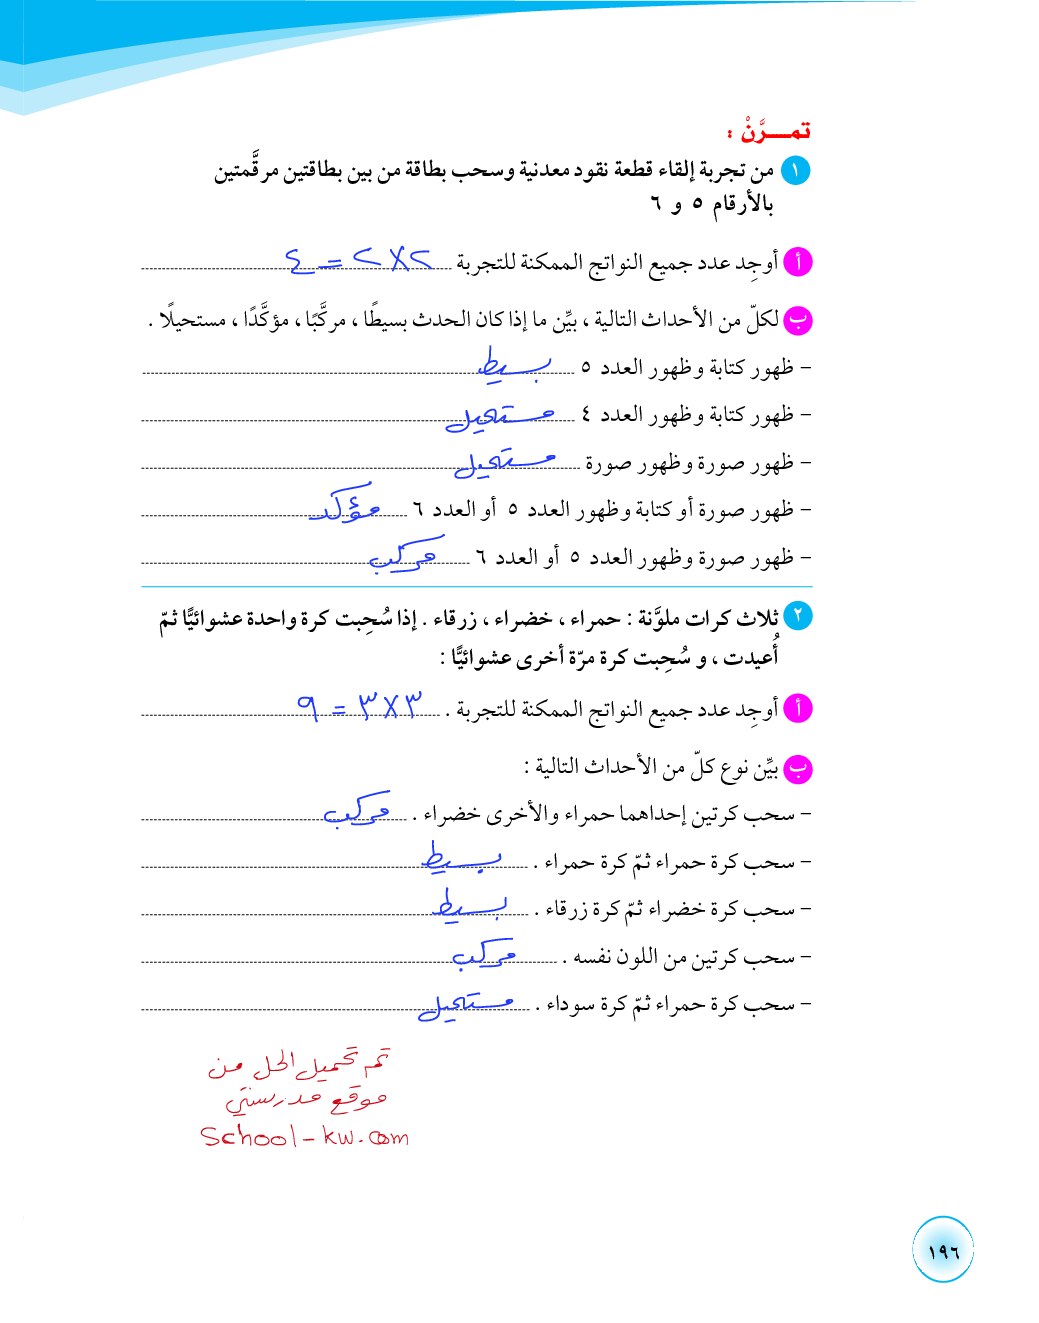 تمـــرَّنْ :
١ من تجربة إلقاء قطعة نقود معدنية وسحب بطاقة من بين بطاقتين مرقَّمتين
بالأرقام ٥ و ٦
أ أوجِد عدد جميع النواتج الممكنة للتجربة ٢ × ٢ = ٤
ب لكلّ من الأحداث التالية ، بيِّن ما إذا كان الحدث بسيطًا ، مركَّبًا ، مؤكَّدًا ، مستحيلًا .
– ظهور كتابة وظهور العدد ٥ بسيط
– ظهور كتابة وظهور العدد ٤ مستحيل
– ظهور صورة وظهور صورة مستحيل
– ظهور صورة أو كتابة وظهور العدد ٥ أو العدد ٦ مؤكد
– ظهور صورة وظهور العدد ٥ أو العدد ٦ مركب
٢ ثلاث كرات ملوَّنة : حمراء ، خضراء ، زرقاء . إذا سُحِبت كرة واحدة عشوائيًّا ثمّ
أُعيدت ، و سُحِبت كرة مرّة أخرى عشوائيًّا :
أ أوجِد عدد جميع النواتج الممكنة للتجربة . ٣ × ٣ = ٩
ب بيِّن نوع كلّ من الأحداث التالية :
– سحب كرتين إحداهما حمراء والأخرى خضراء . مركب
– سحب كرة حمراء ثمّ كرة حمراء . بسيط
– سحب كرة خضراء ثمّ كرة زرقاء . بسيط
– سحب كرتين من اللون نفسه . مركب
– سحب كرة حمراء ثمّ كرة سوداء . مستحيل
تم تحميل الحل من
موقع مدرستي
School-kw.com
١٩٦